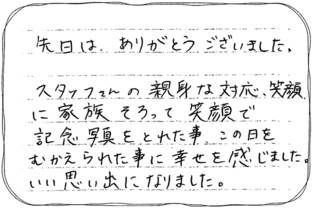 先日は、ありがとうございました。
スタッフさんの親身な対応、笑顔
に家族そろって笑顔で
記念写真をとれた事、この日を
むかえられた事に幸せを感じました。
いい思い出になりました。